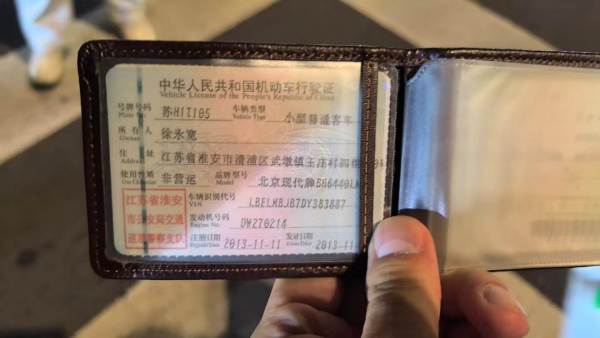 中华人民共和国机动车行驶证
Vehicle License of the People's Republic of China
号牌号码 苏H1T105 车辆类型 小型普通客车
Plate No. Vehicle Type
所有人 徐永宽
Owner
住址 江苏省淮安市清浦区武墩镇王庄村四组
Address
使用性质 非营运 品牌型号 北京现代牌
Use Character Model
江苏省淮安 车辆识别代号 LBELMBJB7DY383887
VIN
市公安局交通 发动机号码 DW270214
Engine No.
巡逻警察支队 注册日期 2013-11-11 发证日期 2013-11
Register Date Issue Date